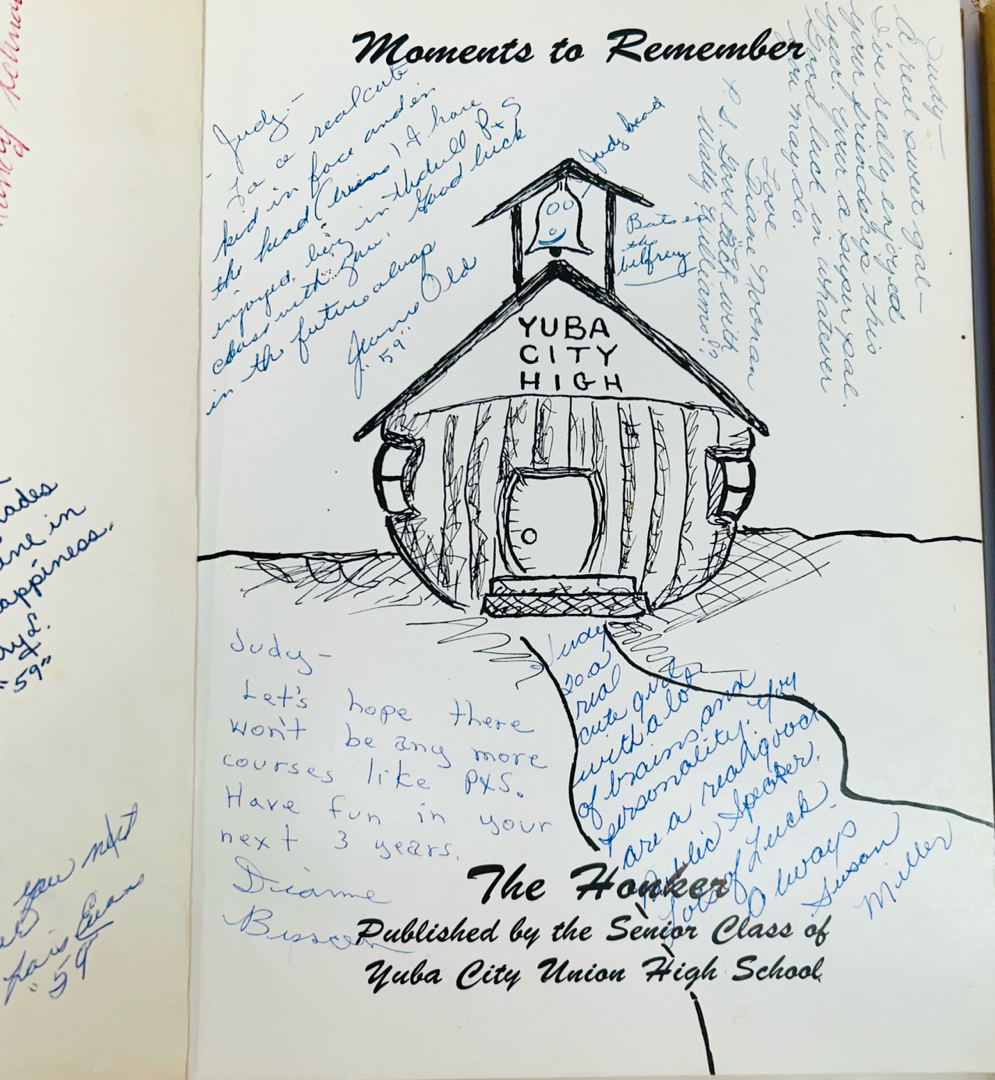 Moments to Remember
Judy-
To a real cute
kid in face and in
the head (brains)! I have
injoyed being in thdull P&S
class with you. Good luck
in the future alwap
Jeanne Old
"59"
Judy beard
Bats
the
bilfrey
Judy-
A real sweet gal-
I've really enjoyed
your friendship this
year. Your a super pal.
Good luck in whatever
you may do.
Love
Diane Noonan
P.S. Good luck with
Wally G. Williams!!
YUBA
CITY
HIGH
Judy-
Let's hope there
won't be any more
courses like P&S.
Have fun in your
next 3 years.
Diane
Judy
To a
real
cute girl
with a lot
of brains and
personality. You
are a real good
Public Speaker.
Lots of Luck
Always
Susan
Miller
The Honker
Published by the Senior Class of
Yuba City Union High School
ine in
appiness.
"59"
you next
Evans
"59"